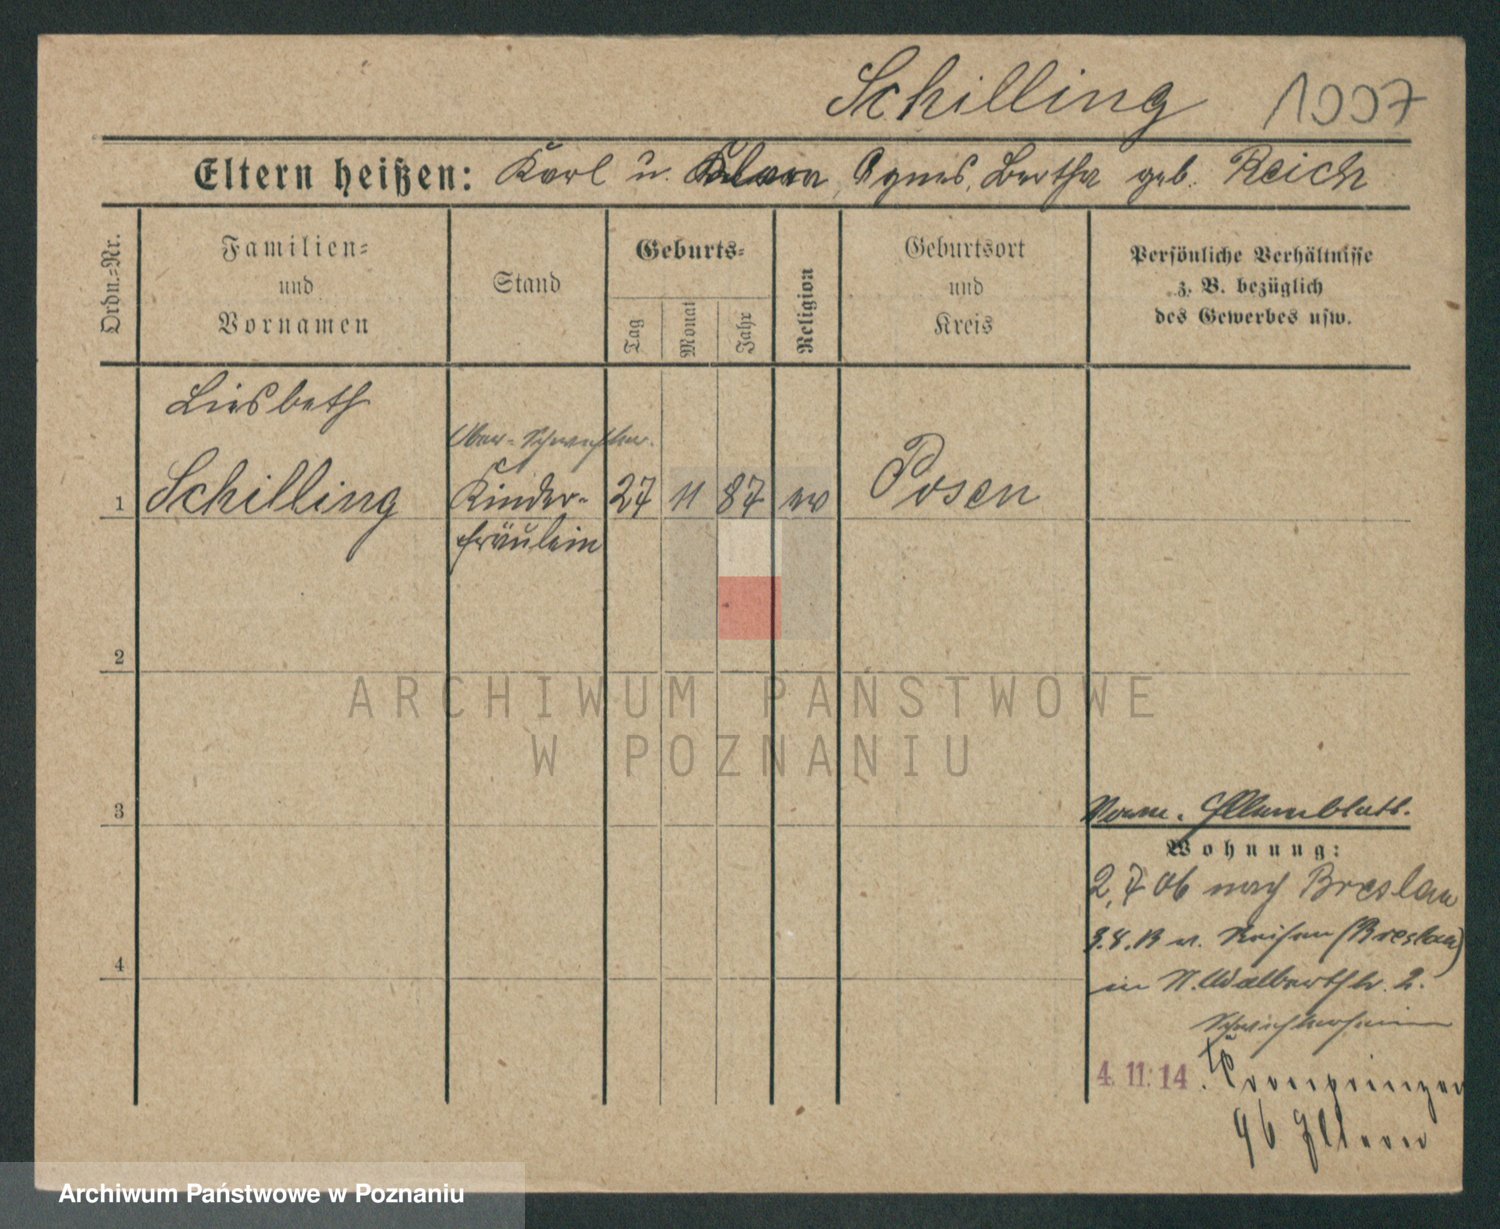 Schilling 1007
Eltern heißen: Karl u. Klara, Agnes, Bertha geb. Reich
Ordn.=Nr.
Familien=
und
Vornamen
Stand
Geburts=
Tag
Monat
Jahr
Religion
Geburtsort
und
Kreis
Persönliche Verhältnisse
z. B. bezüglich
des Gewerbes usw.
Liesbeth
Ober-Schwester.
1 Schilling Kinder- 27 11 87 ev Posen
fräulein
2
ARCHIWUM PAŃSTWOWE
W POZNANIU
3
Elternblatt.
Wohnung:
2,7 06 nach Breslau
3.8.13 v. Reisen (Breslau)
in St. Adalbertstr. 2.
4
Schwesternheim
4. 11. 14. Kronprinzen
96 Eltern
Archiwum Państwowe w Poznaniu